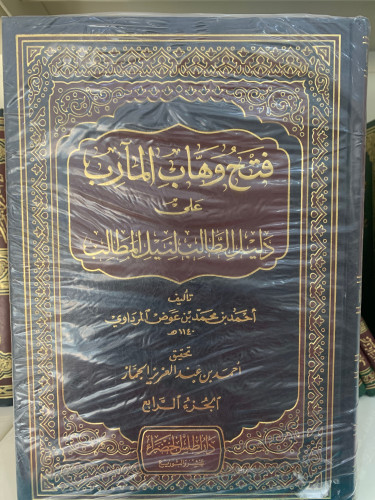 فتح وهاب المآرب
على
دليل الطالب لنيل المطالب
تأليف
أحمد بن محمد بن عوض المرداوي
١١٤٠هـ
تحقيق
أحمد بن عبد العزيز الجماز
الجزء الرابع
دار أطلس الخضراء
للنشر والتوزيع